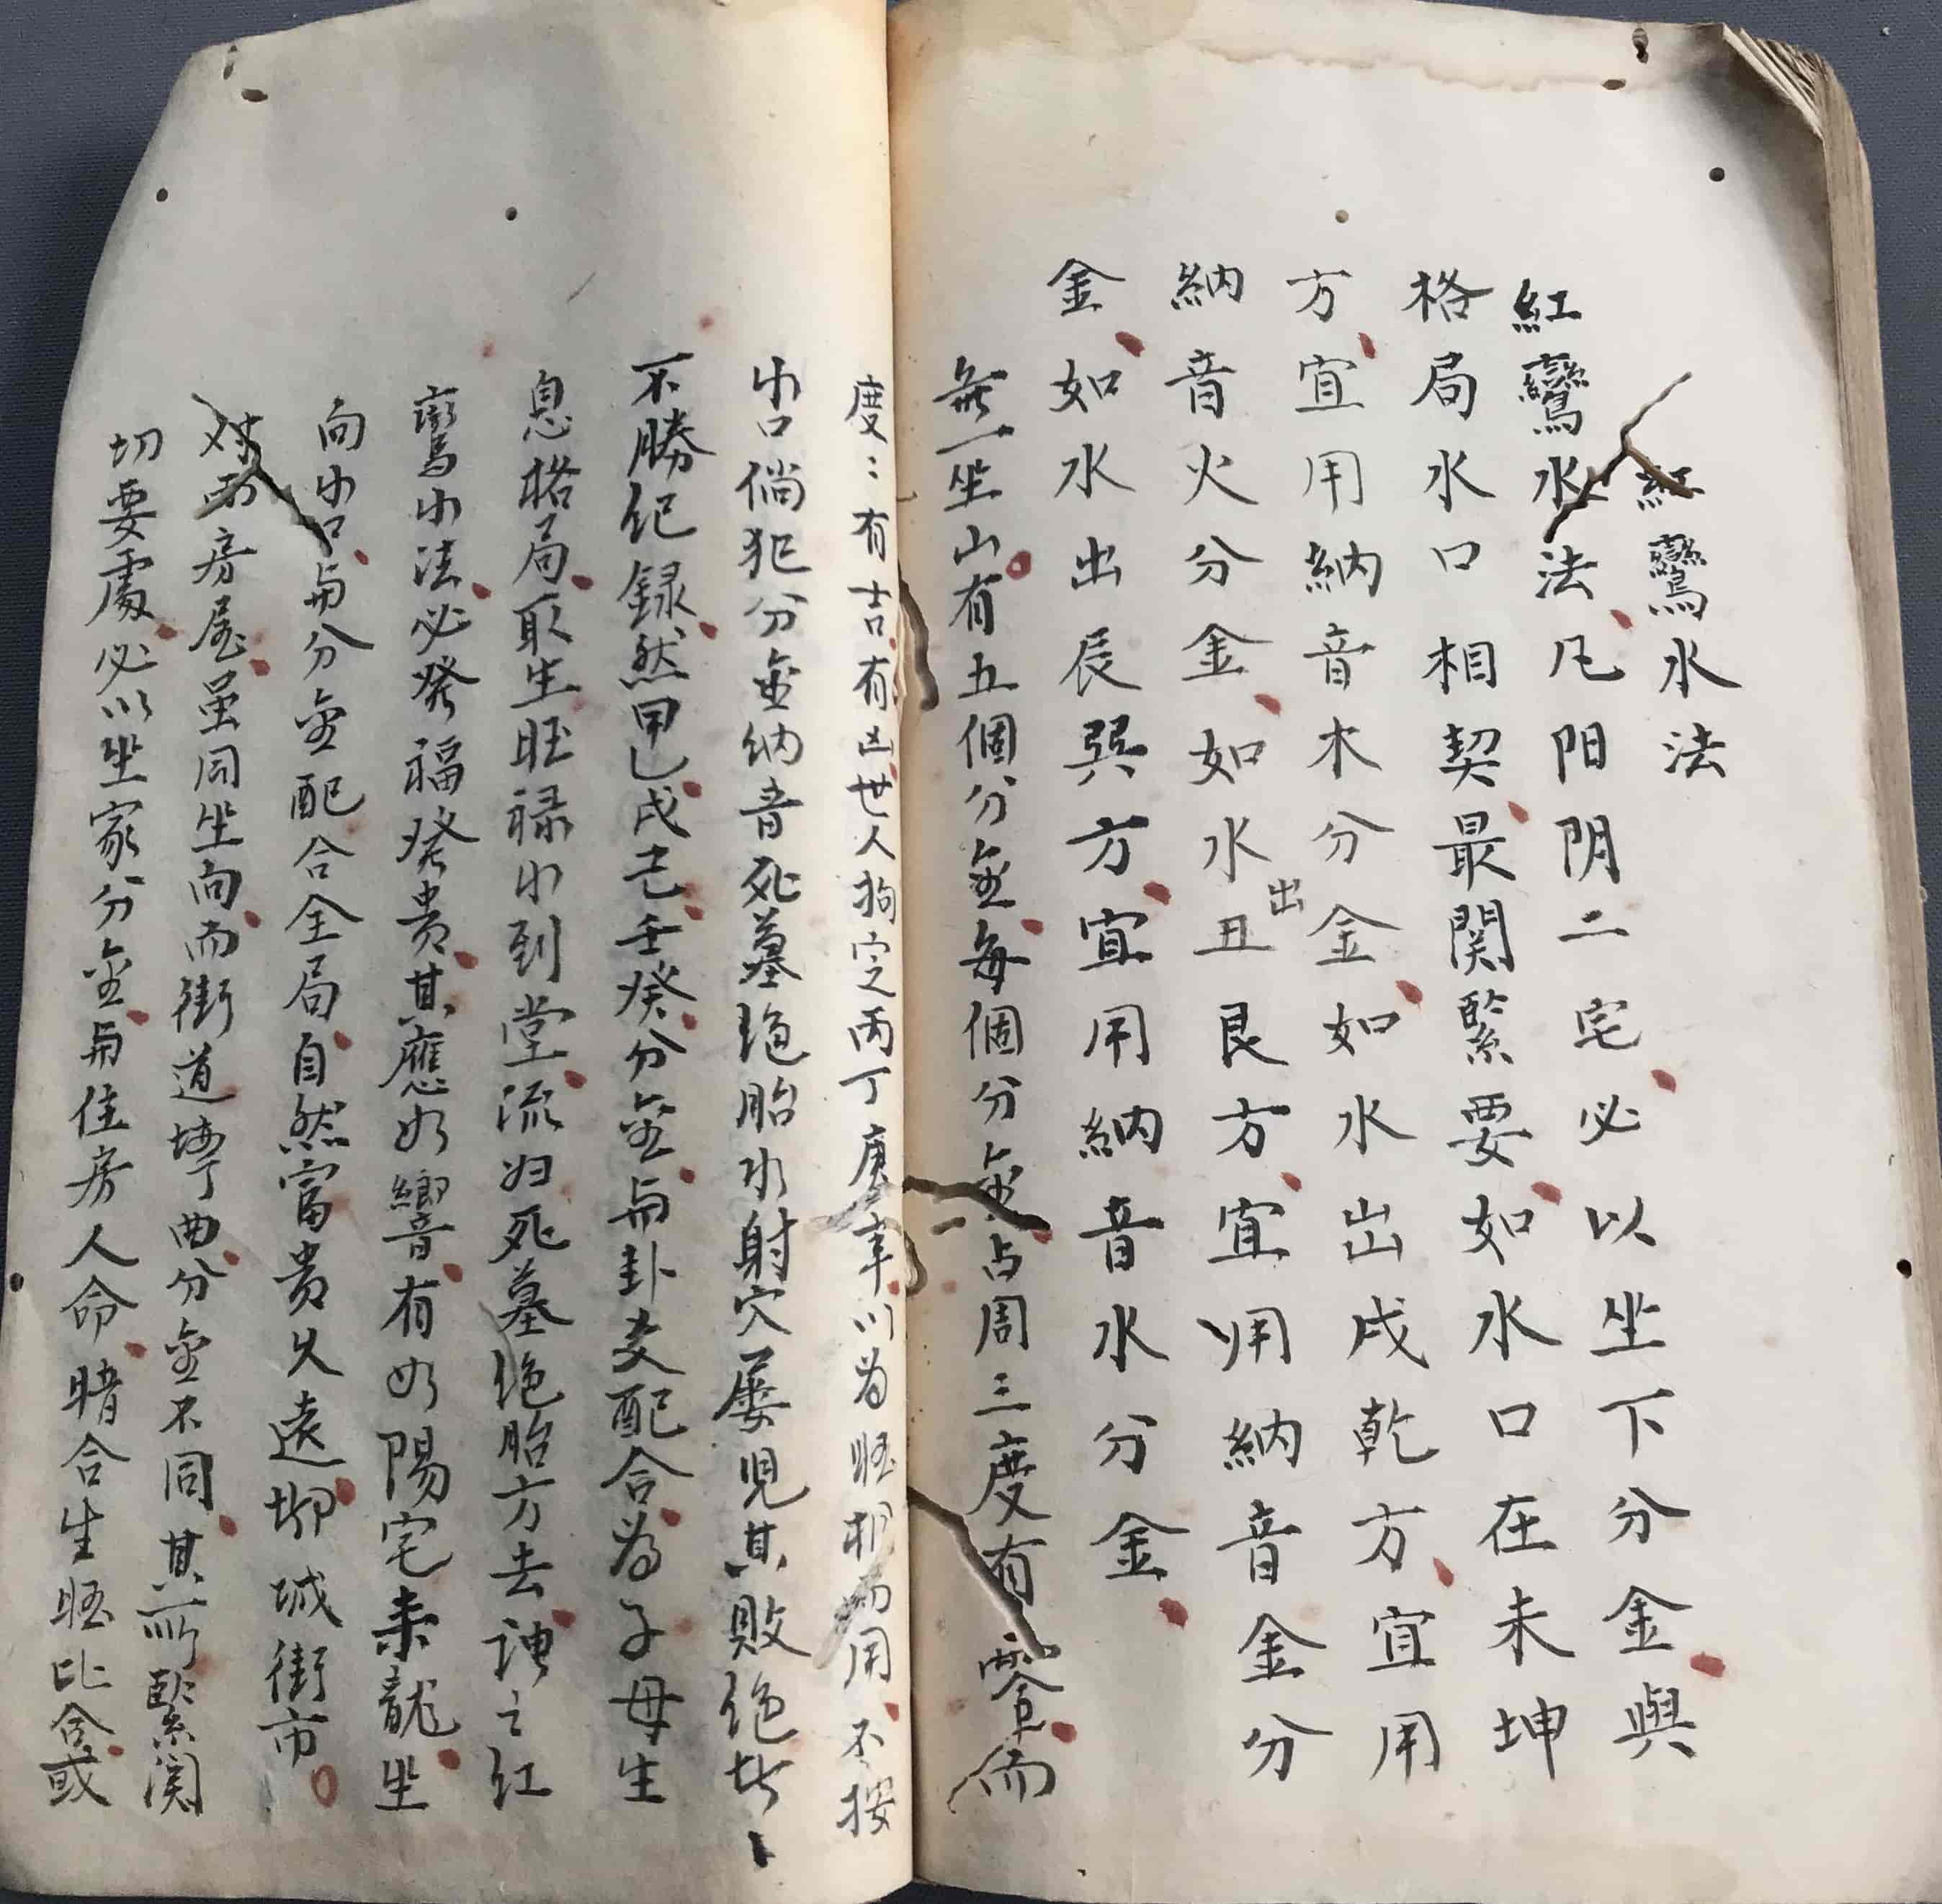 紅鸞水法
紅鸞水法凡阳阴二宅必以坐下分金與
格局水口相契最関緊要如水口在未坤
方宜用納音木分金如水出戌乾方宜用
納音火分金如水出丑艮方宜用納音金分
金如水出辰巽方宜用納音水分金
無一坐山有五個分金每個分金占周三度有零而
度〻有吉有凶世人拘定丙丁庚辛以為旺相而用不按
水口倘犯分金納音死墓绝胎水射穴屡見其敗绝
不勝纪録然甲乙戊己壬癸分金与卦爻配合為子母生
息格局取生旺禄水到堂流归死墓绝胎方去谓之红
鸞水法必発福発貴其應如響音有如陽宅来龍坐
向水口与分金配合全局自然富贵久遠城街市
对面房屋虽同坐向而街道弯曲分金不同其所緊関
切要處必以坐家分金与住房人命暗合生旺比合或